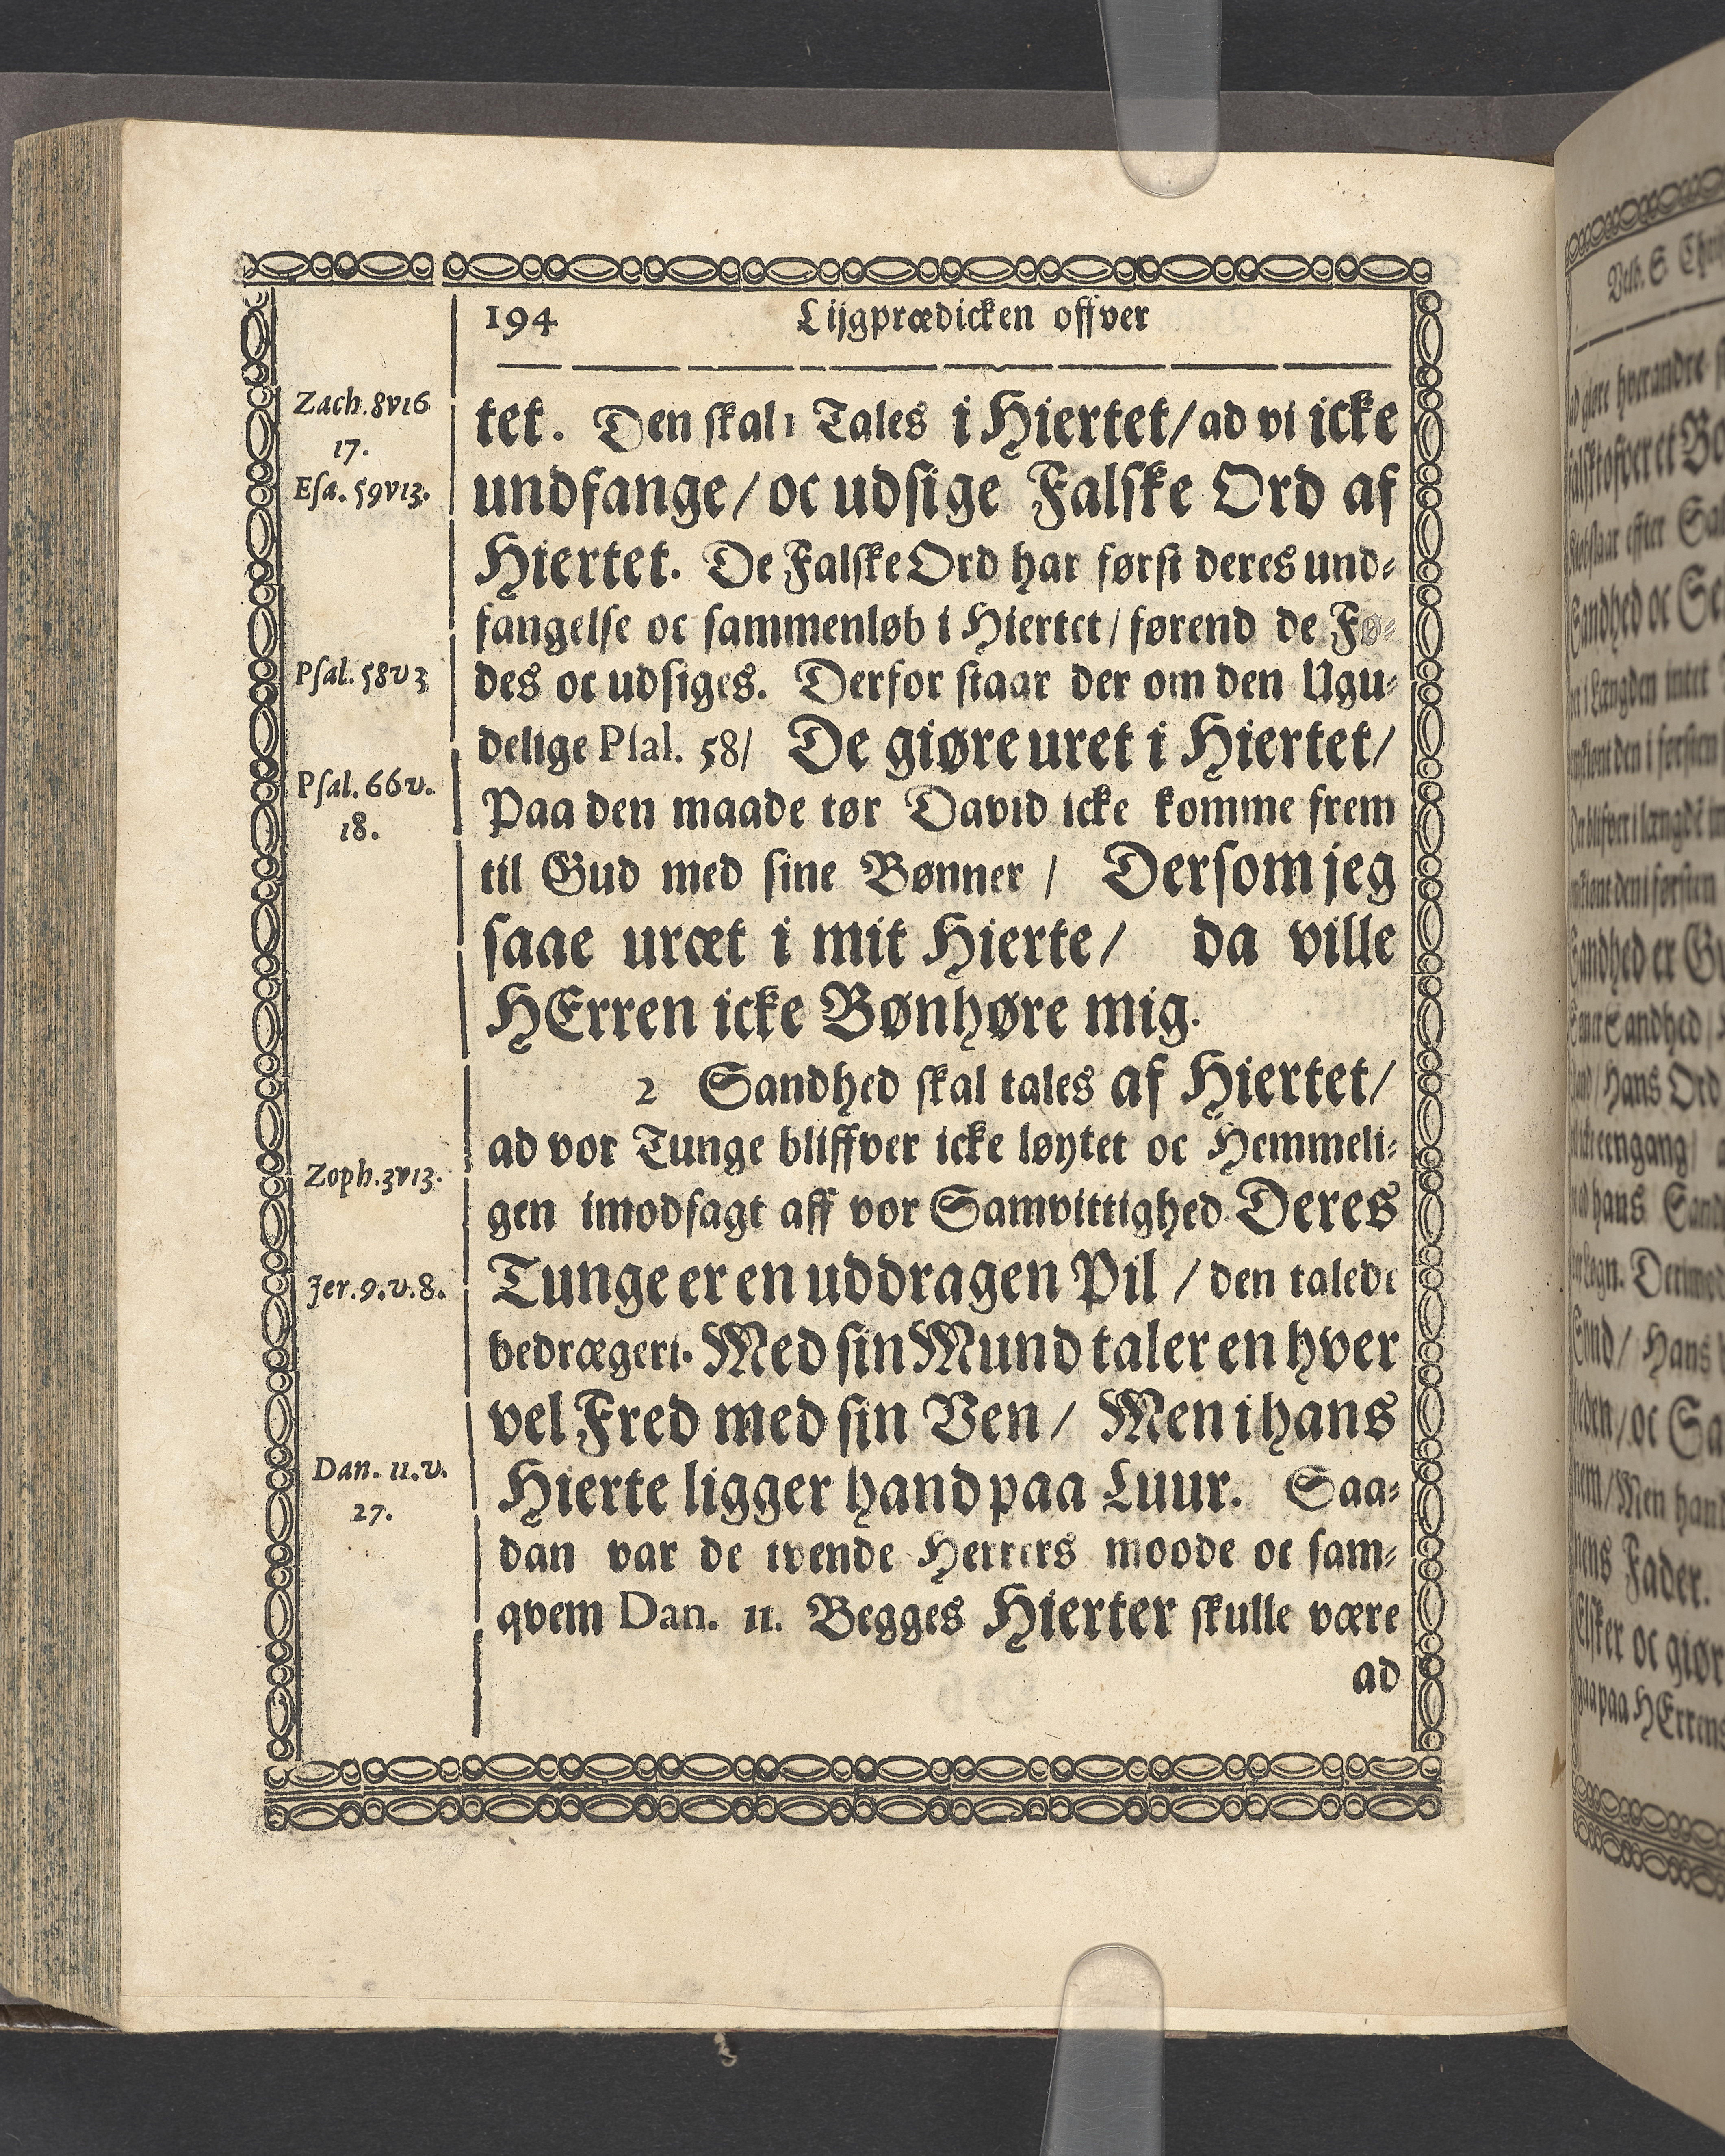 194 Lijgprædicken offver
Zach. 8v16
17.
Esa. 59v13.
Psal. 58v3
Psal. 66v.
18.
Zoph. 3v13.
Jer. 9. v. 8.
Dan. 11. v.
27.
tet. Den skal 1 Tales i Hiertet/ ad vi icke
undfange/ oc udsige Falske Ord af
Hiertet. De Falske Ord har først deres und-
fangelse oc sammenløb i Hiertet/ førend de Fø-
des oc udsiges. Derfor staar der om den Ugu-
delige Psal. 58/ De giøre uret i Hiertet/
Paa den maade tør David icke komme frem
til Gud med sine Bønner/ Dersom jeg
saae uræt i mit Hierte/ da ville
HErren icke Bønhøre mig.
2 Sandhed skal tales af Hiertet/
ad vor Tunge bliffver icke løytet oc Hemmeli-
gen imodsagt aff vor Samvittighed Deres
Tunge er en uddragen Pil / den talede
bedrægeri. Med sin Mund taler en hver
vel Fred med sin Ven/ Men i hans
Hierte ligger hand paa Luur. Saa-
dan var de tvende Herrers moode oc sam-
qvem Dan. 11. Begges Hierter skulle være
ad